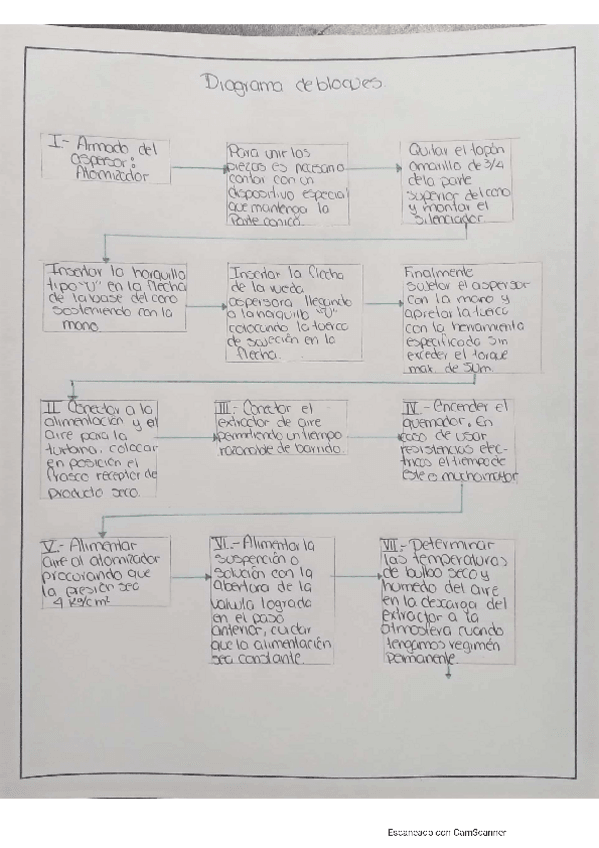 Diagrama de bloques.
I- Armado del
aspersor:
Atomizador
Para unir las
piezas es necesario
contar con un
dispositivo especial
que mantenga la
parte conica.
Quitar el tapón
amarillo de 3/4
de la parte
superior del cono
y montar el
silenciador.
Insertar la horquilla
tipo "U" en la flecha
de la base del cono
sosteniendo con la
mano.
Insertar la flecha
de la rueda
aspersora llegando
a la horquilla "U"
colocando la tuerca
de sujeción en la
flecha.
Finalmente
sujetar el aspersor
con la mano y
apretar la tuerca
con la herramienta
especificada sin
exceder el torque
max. de 5Nm.
II. Conectar a la
alimentación y el
aire para la
turbina, colocar
en posición el
frasco receptor de
producto seco.
III.- Conectar el
extractor de aire
permitiendo un tiempo
razonable de barrido.
IV.- Encender el
quemador. En
caso de usar
resistencias eléc-
tricas el tiempo de
este es mucho mayor
V.- Alimentar
aire al atomizador
procurando que
la presión sea
4 kg/cm²
VI.- Alimentar la
suspención o
solución con la
abertura de la
valvula lograda
en el paso
anterior, cuidar
que la alimentación
sea constante.
VII.- Determinar
las temperaturas
de bulbo seco y
humedo del aire
en la descarga del
extractor a la
atmosfera cuando
tengamos regimén
permanente.
Escaneado con CamScanner